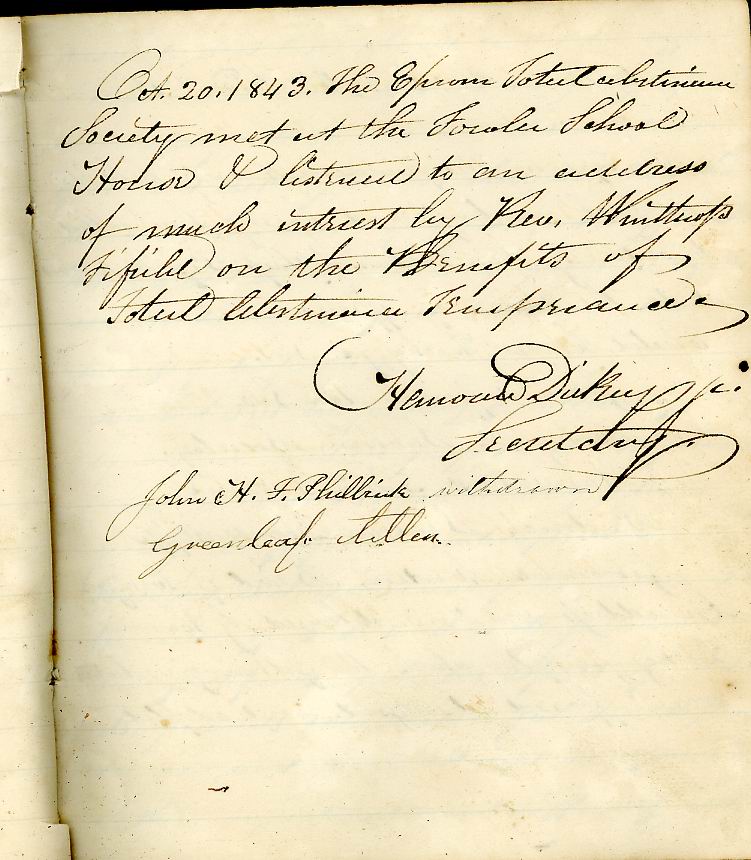 Oct. 20. 1843. The Epsom Total abstinence
Society met at the Fowler School
House & listened to an address
of much intrest by Rev. Winthrop
Fifield on the Benefits of
Total Abstinence Temperance
Hanover Dickey jr.
Secretary.
John H. F. Philbrick withdrawn
Greenleaf Allen.